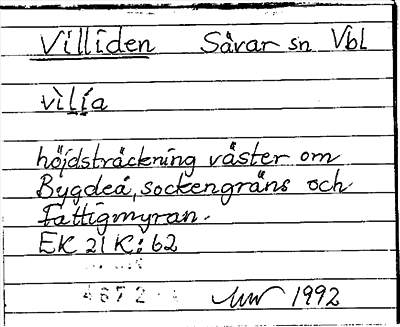 Villiden Sävar sn Vbl
vìlía
höjdsträckning väster om
Bygdeå, sockengräns och
Fattigmyran.
EK 21 K: 62
4672
1992